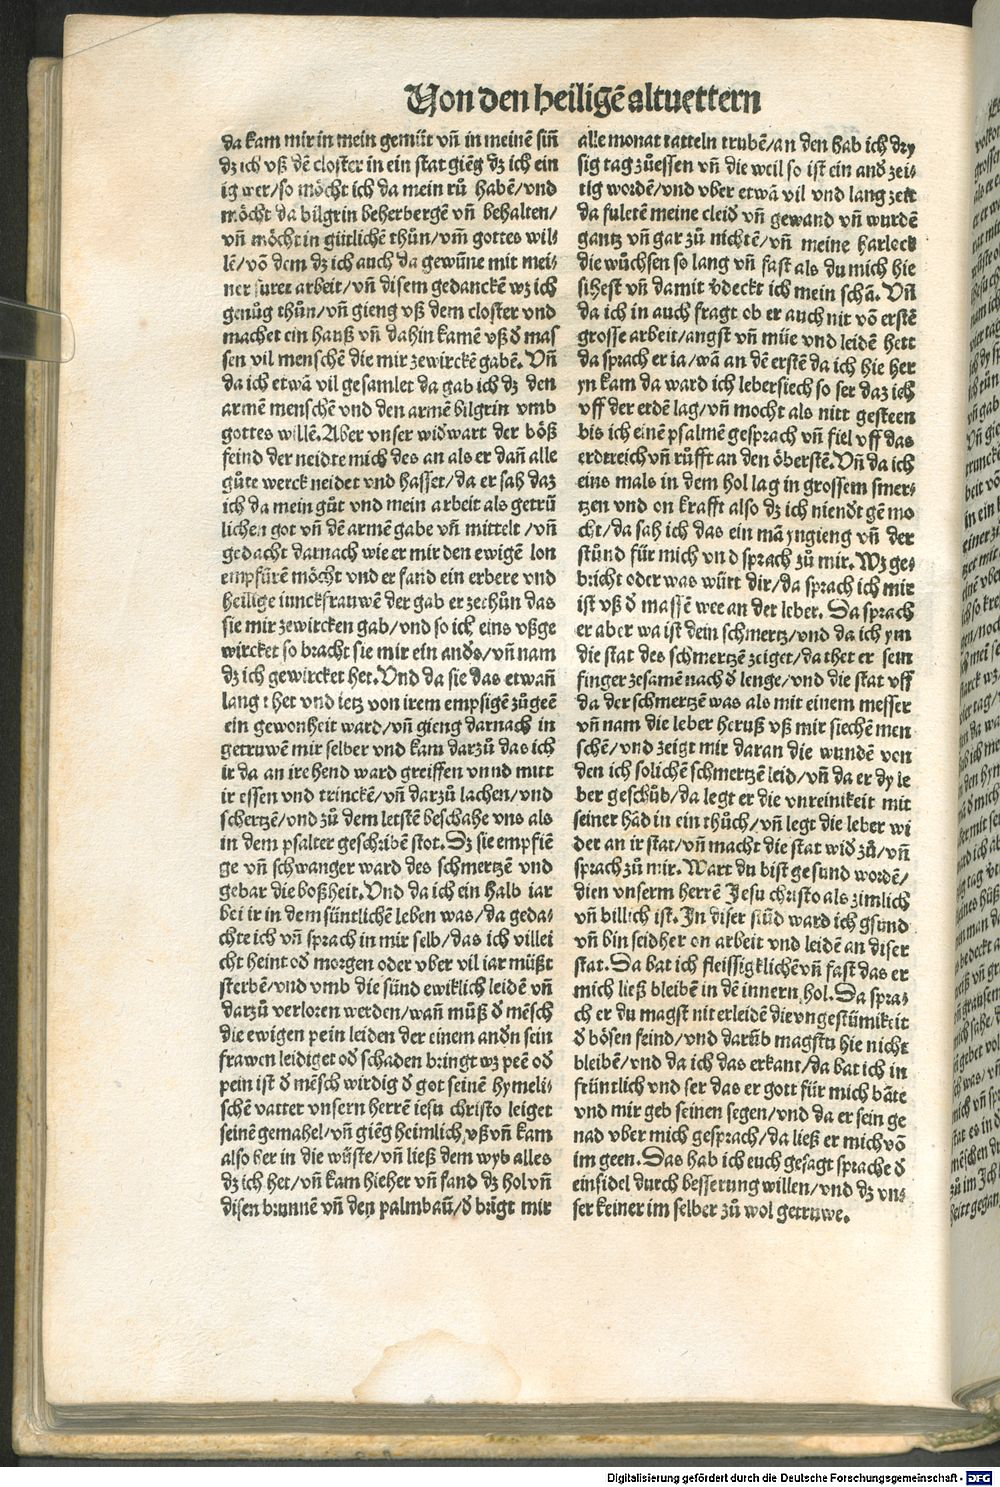 Von den heiligē altuettern
da kam mir in mein gemüt vñ in meinē siñ
dz ich vß dē closter in ein stat giēg dz ich ein
ig wer/so möcht ich da mein rů habē/vnd
möcht da bilgrin beherbergē vñ behalten/
vñ möcht in gütlichē thůn/vm̄ gottes wil-
lē/vō dem dz ich auch da gewūne mit mei-
ner surer arbeit/vñ disem gedanckē wz ich
genůg thůn/vñ gieng vß dem closter vnd
machet ein hauß vñ dahin kamē vß đ mas
sen vil menschē die mir zewirckē gabē. Vñ
da ich etwā vil gesamlet da gab ich dz den
armē menschē vnd den armē bilgrin vmb
gottes willē. Aber vnser widwart der böß
feind der neidte mich des an als er dañ alle
gůte werck neidet vnd hasset/da er sah daz
ich da mein gůt vnd mein arbeit als getrü
lichen got vñ dē armē gabe vñ mittelt/vñ
gedacht darnach wie er mir den ewigē lon
empfürē möcht vnd er fand ein erbere vnd
heilige iunckfrauwē der gab er zethůn das
sie mir zewircken gab/vnd so ich eins vßge
wircket so bracht sie mir ein ands/vñ nam
dz ich gewircket het. Vnd da sie das etwañ
lang thet vnd ietz von irem empsigē zůgeē
ein gewonheit ward/vñ gieng darnach in
getruwē mir selber vnd kam darzů das ich
ir da an ire hend ward greiffen vnnd mitt
ir essen vnd trinckē/vñ darzů lachen/vnd
schertzē/vnd zů dem letstē beschahe vns als
in dem psalter geschribē stot. Dz sie empfiē
ge vñ schwanger ward des schmertzē vnd
gebar die boßheit. Vnd da ich ein halb iar
bei ir in dem süntlichē leben was/da geda-
chte ich vñ sprach in mir selb/das ich villei
cht heint ođ morgen oder vber vil iar müßt
sterbē/vnd vmb die sünd ewiklich leidē vñ
darzů verloren werden/wañ můß đ mēsch
die ewigen pein leiden der einem andn sein
frawen leidiget ođ schaden bringt wz peē ođ
pein ist đ mēsch wirdig đ got seinē hymeli-
schē vatter vnsern herrē iesu christo leiget
seinē gemahel/vñ giēg heimlich vß vñ kam
also her in die wüste/vñ ließ dem wyb alles
dz ich het/vñ kam hieher vñ fand dz hol vñ
disen brunnē vñ den palmbaū/đ brīgt mir
alle monat tatteln trubē/an den hab ich dry
sig tag zůessen vñ die weil so ist ein anđ zei-
tig wordē/vnd vber etwā vil vnd lang zeit
da fuletē meine cleid vñ gewand vñ wurdē
gantz vñ gar zů nichtē/vñ meine harleck
die wůchsen so lang vñ fast als du mich hie
sihest vñ damit v̄deckt ich mein schā. Vñ
da ich in auch fragt ob er auch nit vō erstē
grosse arbeit/angst vñ müe vnd leidē hett
da sprach er ia/wā an dē erstē da ich hie her
yn kam da ward ich lebersiech so ser daz ich
vff der erdē lag/vñ mocht als nitt gesteen
bis ich einē psalmē gesprach vñ fiel vff das
erdtreich vñ růfft an den öberstē. Vñ da ich
eins mals in dem hol lag in grossem smer-
tzen vnd on krafft also dz ich niendt gē mo
cht/da sah ich das ein mā yngieng vñ der
stůnd für mich vnd sprach zů mir. Wz ge-
bricht oder was würt dir/da sprach ich mir
ist vß đ massē wee an der leber. Da sprach
er aber wa ist dein schmertz/vnd da ich ym
die stat des schmertzē zeiget/da thet er sein
finger zesamē nach đ lenge/vnd die stat vff
da der schmertzē was als mit einem messer
vñ nam die leber heruß vß mir siechē men
schē/vnd zeigt mir daran die wundē von
den ich solichē schmertzē leid/vñ da er dy le
ber geschůb/da legt er die vnreinikeit mit
seiner hād in ein thůch/vñ legt die leber wi
der an ir stat/vñ macht die stat wiđ zů/vñ
sprach zů mir. Wart du bist gesund wordē/
dien vnserm herrē Jesu christo als zimlich
vñ billich ist. In diser stūd ward ich gsund
vñ bin seidher on arbeit vnd leidē an diser
stat. Da bat ich fleissigklichē vñ fast das er
mich ließ bleibē in dē innern hol. Da spra-
ch er du magst nit erleidē die vngestümikeit
đ bösen feind/vnd darūb magstu hie nicht
bleibē/vnd da ich das erkant/da bat ich in
früntlich vnd ser das er gott für mich bäte
vnd mir geb seinen segen/vnd da er sein ge
nad vber mich gesprach/da ließ er mich vō
im geen. Das hab ich euch gesagt sprache đ
einsidel durch besserung willen/vnd dz vn-
ser keiner im selber zů wol getruwe.
Digitalisierung gefördert durch die Deutsche Forschungsgemeinschaft - DFG